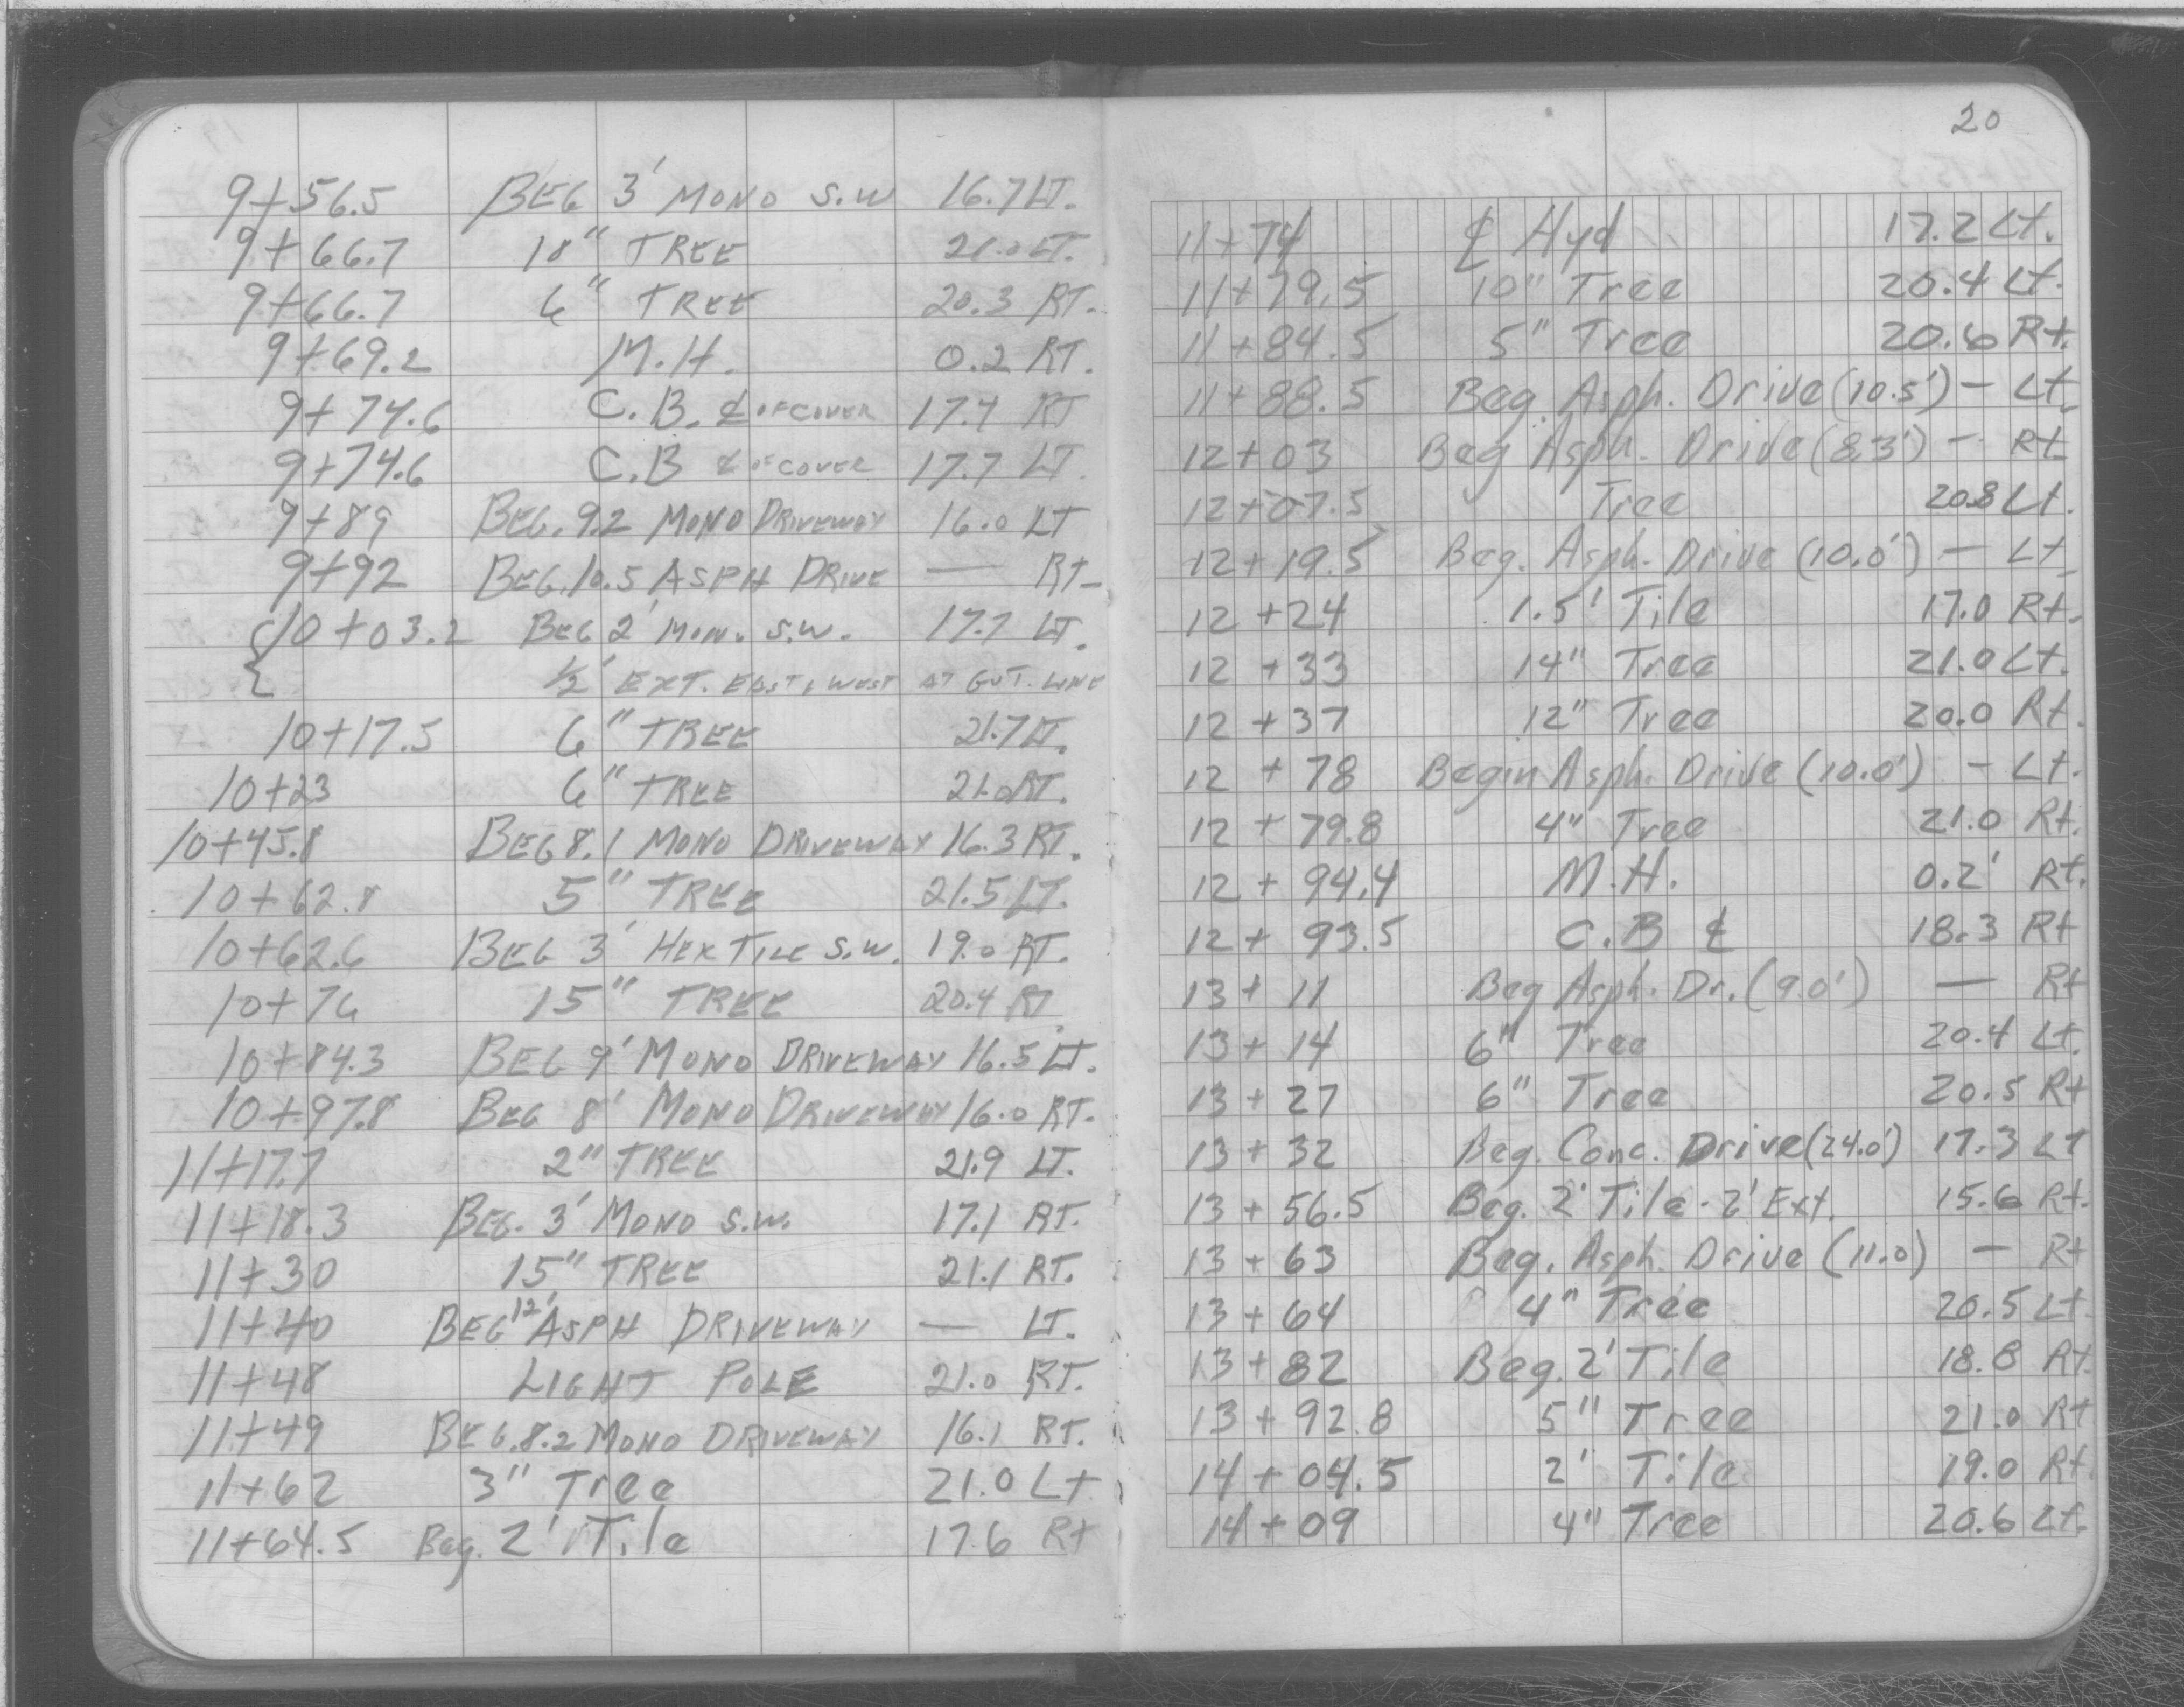 9+56.5 BEG 3' MONO S.W 16.7 LT.
9+66.7 18" TREE 21.0 LT.
9+66.7 6" TREE 20.3 RT.
9+69.2 M.H. 0.2 RT.
9+74.6 C.B. ℄ OF COVER 17.4 RT
9+74.6 C.B ℄ OF COVER 17.7 LT.
9+89 BEG. 9.2 MONO DRIVEWAY 16.0 LT
9+92 BEG. 10.5 ASPH DRIVE — RT-
{10+03.2 BEG 2' MON. S.W. 17.7 LT.
½' EXT. EAST & WEST AT GUT. LINE
10+17.5 6" TREE 21.7 LT.
10+23 6" TREE 21.0 RT.
10+45.8 BEG 8.1 MONO DRIVEWAY 16.3 RT.
10+62.8 5" TREE 21.5 LT.
10+62.6 BEG 3' HEX TILE S.W. 19.0 RT.
10+76 15" TREE 20.4 RT
10+84.3 BEG 9' MONO DRIVEWAY 16.5 LT.
10+97.8 BEG 8' MONO DRIVEWAY 16.0 RT.
11+17.7 2" TREE 21.9 LT.
11+18.3 BEG. 3' MONO S.W. 17.1 RT.
11+30 15" TREE 21.1 RT.
11+40 BEG 12' ASPH DRIVEWAY — LT.
11+48 LIGHT POLE 21.0 RT.
11+49 BEG. 8.2 MONO DRIVEWAY 16.1 RT.
11+62 3" Tree 21.0 Lt
11+64.5 Beg. 2' Tile 17.6 Rt
20
11+74 ℄ Hyd 17.2 Lt.
11+79.5 10" Tree 20.4 Lt.
11+84.5 5" Tree 20.6 Rt.
11+88.5 Beg. Asph. Drive (10.5') - Lt.
12+03 Beg Asph. Drive (8.3') - Rt.
12+07.5 Tree 20.8 Lt.
12+19.5 Beg. Asph. Drive (10.0') - Lt.
12+24 1.5' Tile 17.0 Rt.
12+33 14" Tree 21.0 Lt.
12+37 12" Tree 20.0 Rt.
12+78 Begin Asph. Drive (10.0') - Lt.
12+79.8 4" Tree 21.0 Rt.
12+94.4 M.H. 0.2' Rt.
12+93.5 C.B ℄ 18.3 Rt
13+11 Beg Asph. Dr. (9.0') — Rt
13+14 6" Tree 20.4 Lt.
13+27 6" Tree 20.5 Rt
13+32 Beg. Conc. Drive (24.0') 17.3 Lt
13+56.5 Beg. 2' Tile - 2' Ext. 15.6 Rt.
13+63 Beg. Asph. Drive (11.0) - Rt
13+64 4" Tree 20.5 Lt.
13+82 Beg. 2' Tile 18.8 Rt.
13+92.8 5" Tree 21.0 Rt
14+04.5 2' Tile 19.0 Rt.
14+09 4" Tree 20.6 Lt.